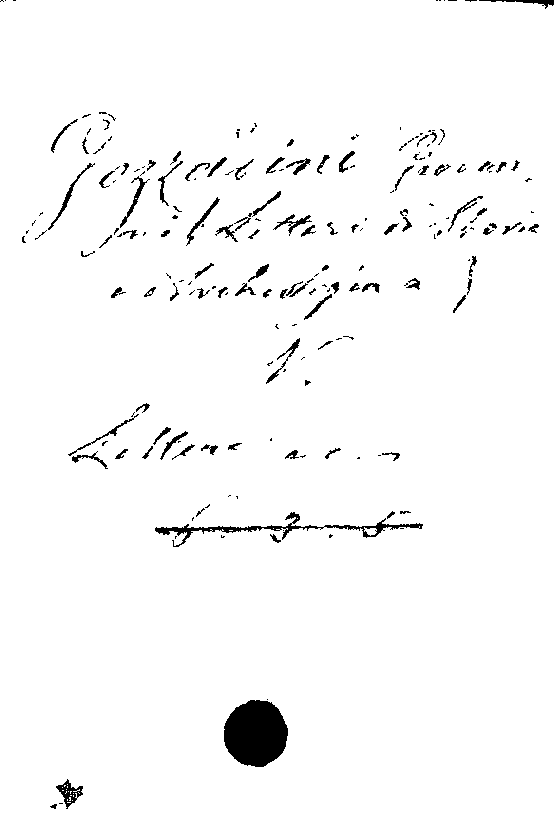 Gozzadini Giovan.
Lettere di Storia
e Archeologia a
V.
Lettere
6. 3. 5